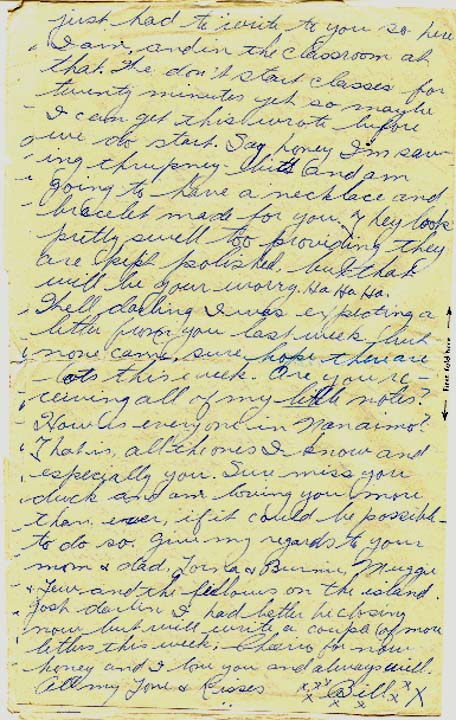 just had to write to you so here
I am, and in the classroom at
that. We don't start classes for
twenty minutes yet so maybe
I can get this wrote before
we do start. Say honey I'm sav-
ing thrupney bits and am
going to have a necklace and
bracelet made for you. They look
pretty swell too providing they
are kept polished, but that
will be your worry. Ha Ha Ha.
Well darling I was expecting a
letter from you last week but
none came, sure hope there are
lots this week. Are you re-
ceiving all of my little notes?
How is everyone in Nanaimo?
That is, all the ones I know and
especially you. Sure miss you
duck and am loving you more
than ever, if it could be possible
to do so. Give my regards to your
mom & dad, Lorna & Burnie, Muggie
& and the fellows on the island.
Gosh darlin I had better be closing
now but will write a couple of more
letters this week. Cheerio for now
honey and I love you and always will.
All my Love & Kisses xxx Bill xxx
x x x
First fold here